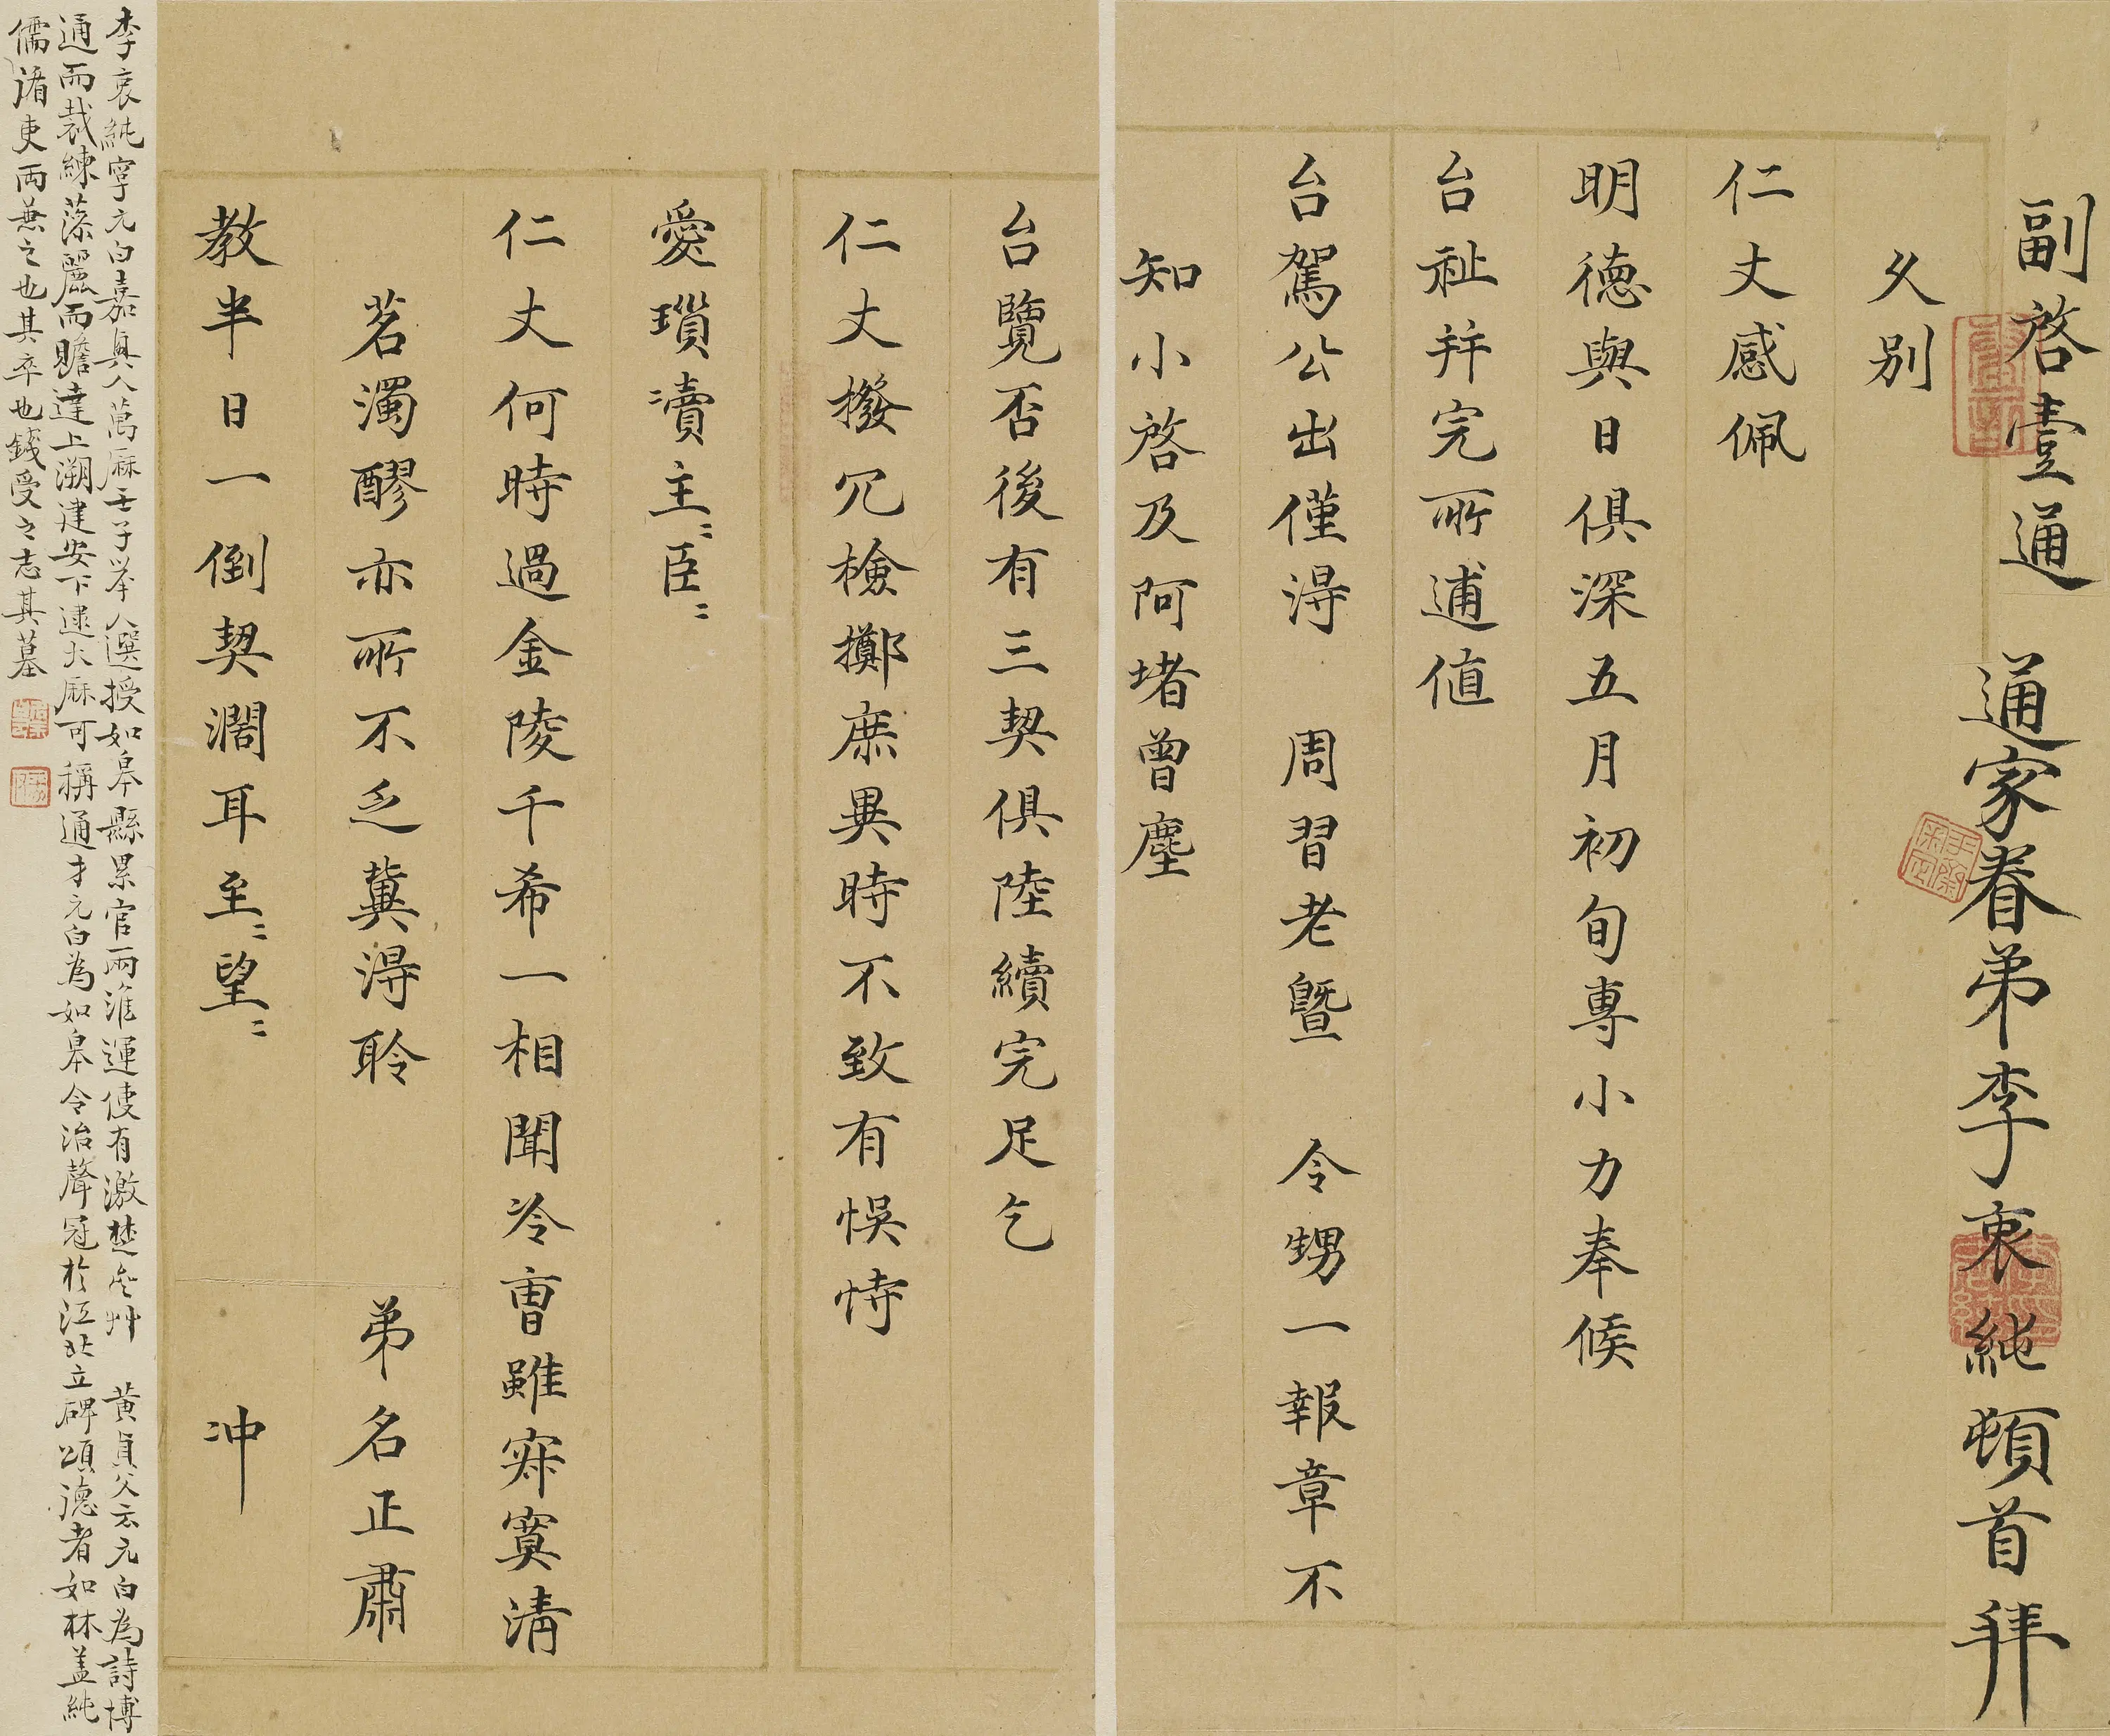 副啓壹通 通家眷弟李衷純頓首拜
久別
仁丈感佩
明德與日俱深五月初旬專小力奉候
台祉并完所逋值
台駕公出僅得 周習老暨 令甥一報章不
知小啓及阿堵曾塵
台覽否後有三契俱陸續完足乞
仁丈撥冗檢擲庶異時不致有悞恃
愛瑣瀆主〻臣〻
仁丈何時過金陵千希一相聞冷曹雖寂寞清
茗濁醪亦所不乏冀得聆
教半日一倒契濶耳至〻望〻
弟名正肅
冲
李衷純字元白嘉興人萬厤壬子举人選授如皋縣累官兩淮運使有激楚齋艸 黄貞父云元白為詩博
通而裁練藻麗而贍達上溯建安下逮大厤可稱通才元白為如皋令治聲冠於江北立碑頌德者如林盖純
儒循吏两兼之也其卒也錢受之志其墓